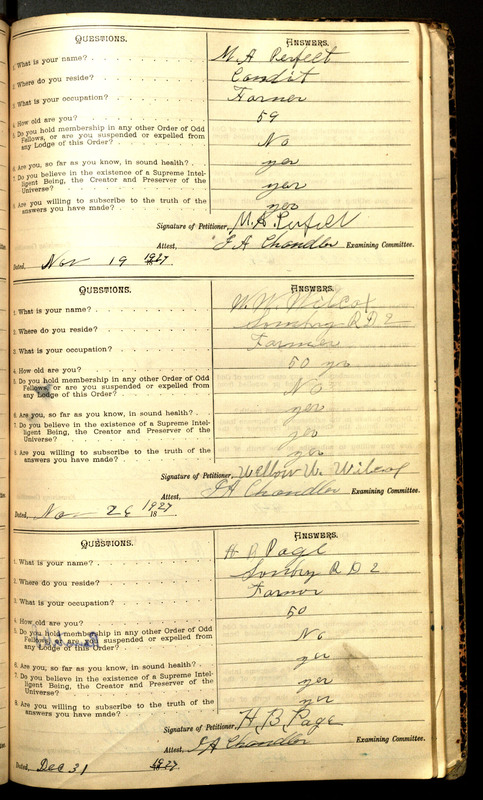 QUESTIONS. ANSWERS.
1. What is your name? M. A. Perfect
2. Where do you reside? Condit
3. What is your occupation? Farmer
4. How old are you? 59
5. Do you hold membership in any other Order of Odd
Fellows, or are you suspended or expelled from
any Lodge of this Order? No
6. Are you, so far as you know, in sound health? yes
7. Do you believe in the existence of a Supreme Intel-
ligent Being, the Creator and Preserver of the
Universe? yes
8. Are you willing to subscribe to the truth of the
answers you have made? yes
Signature of Petitioner, M. A. Perfect
Attest, J A Chandler Examining Committee.
Dated, Nov 19 1927
QUESTIONS. ANSWERS.
1. What is your name? W. W. Wilcox
2. Where do you reside? Sunbry R D 2
3. What is your occupation? Farmer
4. How old are you? 50 yrs
5. Do you hold membership in any other Order of Odd
Fellows, or are you suspended or expelled from
any Lodge of this Order? No
6. Are you, so far as you know, in sound health? yes
7. Do you believe in the existence of a Supreme Intel-
ligent Being, the Creator and Preserver of the
Universe? yes
8. Are you willing to subscribe to the truth of the
answers you have made? yes
Signature of Petitioner, W. Wilcox
Attest, J A Chandler Examining Committee.
Dated, Nov 26 1927
18
QUESTIONS. ANSWERS.
1. What is your name? H B Page
2. Where do you reside? Sunbry R D 2
3. What is your occupation? Farmer
4. How old are you? 50
5. Do you hold membership in any other Order of Odd
Fellows, or are you suspended or expelled from
any Lodge of this Order? No
6. Are you, so far as you know, in sound health? yes
7. Do you believe in the existence of a Supreme Intel-
ligent Being, the Creator and Preserver of the
Universe? yes
8. Are you willing to subscribe to the truth of the
answers you have made? yes
Signature of Petitioner, H. B. Page
Attest, J A Chandler Examining Committee.
Dated, Dec 31 1927